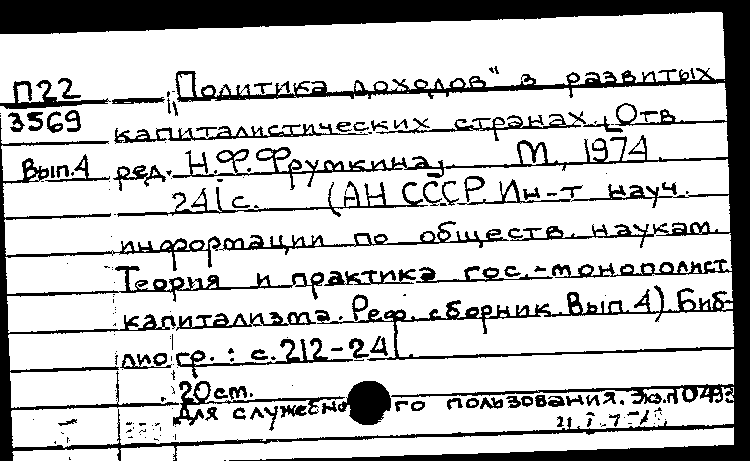 П22 „Политика доходов" в развитых
3569 капиталистических странах. Отв.
Вып.4 ред. Н.Ф.Фрумкина. М., 1974.
241с. (АН СССР. Ин-т науч.
информации по обществ. наукам.
Теория и практика гос.-монополист.
капитализма. Реф. сборник. Вып. 4). Биб-
лиогр.: с. 212-241.
20см.
Для служебно го пользования. Экз.